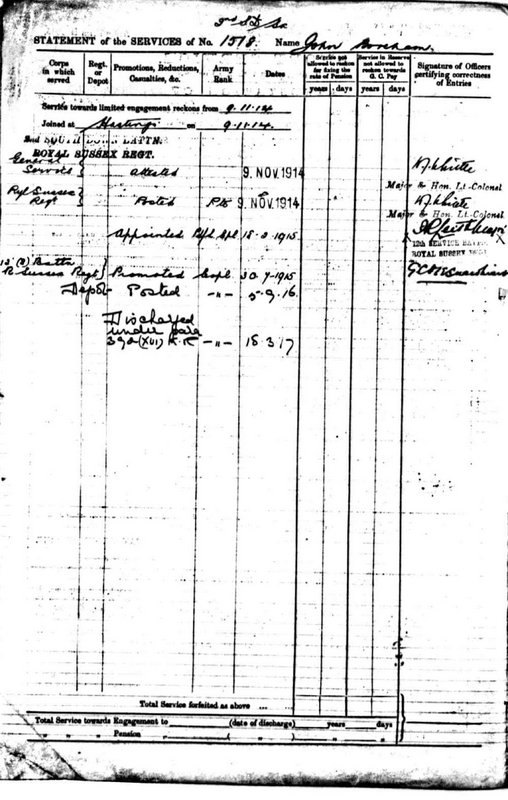 STATEMENT of the SERVICES of No. 1578 Name John
Corps in which served
Regt. or Depot
Promotions, Reductions, Casualties, &c.
Army Rank
Dates
Service not allowed to reckon for fixing the rate of Pension
years days
Service in Reserve not allowed to reckon towards G. C. Pay
years days
Signature of Officers certifying correctness of Entries
Service towards limited engagement reckons from 9.11.14
Joined at Hastings on 9.11.14.
2nd SOUTH DOWN BATTN.
ROYAL SUSSEX REGT.
General Service } Attested 9 NOV 1914
Major & Hon. Lt-Colonel
Ryl Sussex Regt } Posted Pte 9 NOV 1914
Major & Hon. Lt-Colonel
Appointed 1915
12th SERVICE BATTN.
ROYAL SUSSEX REGT
R Sussex Regt } Promoted Corpl 30.7.1915
Depôt Posted -"- 5.9.16.
Discharged
under para
392 (XVI) K.R -"- 18.3.17
Total Service forfeited as above ...
Total Service towards Engagement to (date of discharge) years days
" " " Pension ( " " ) " "